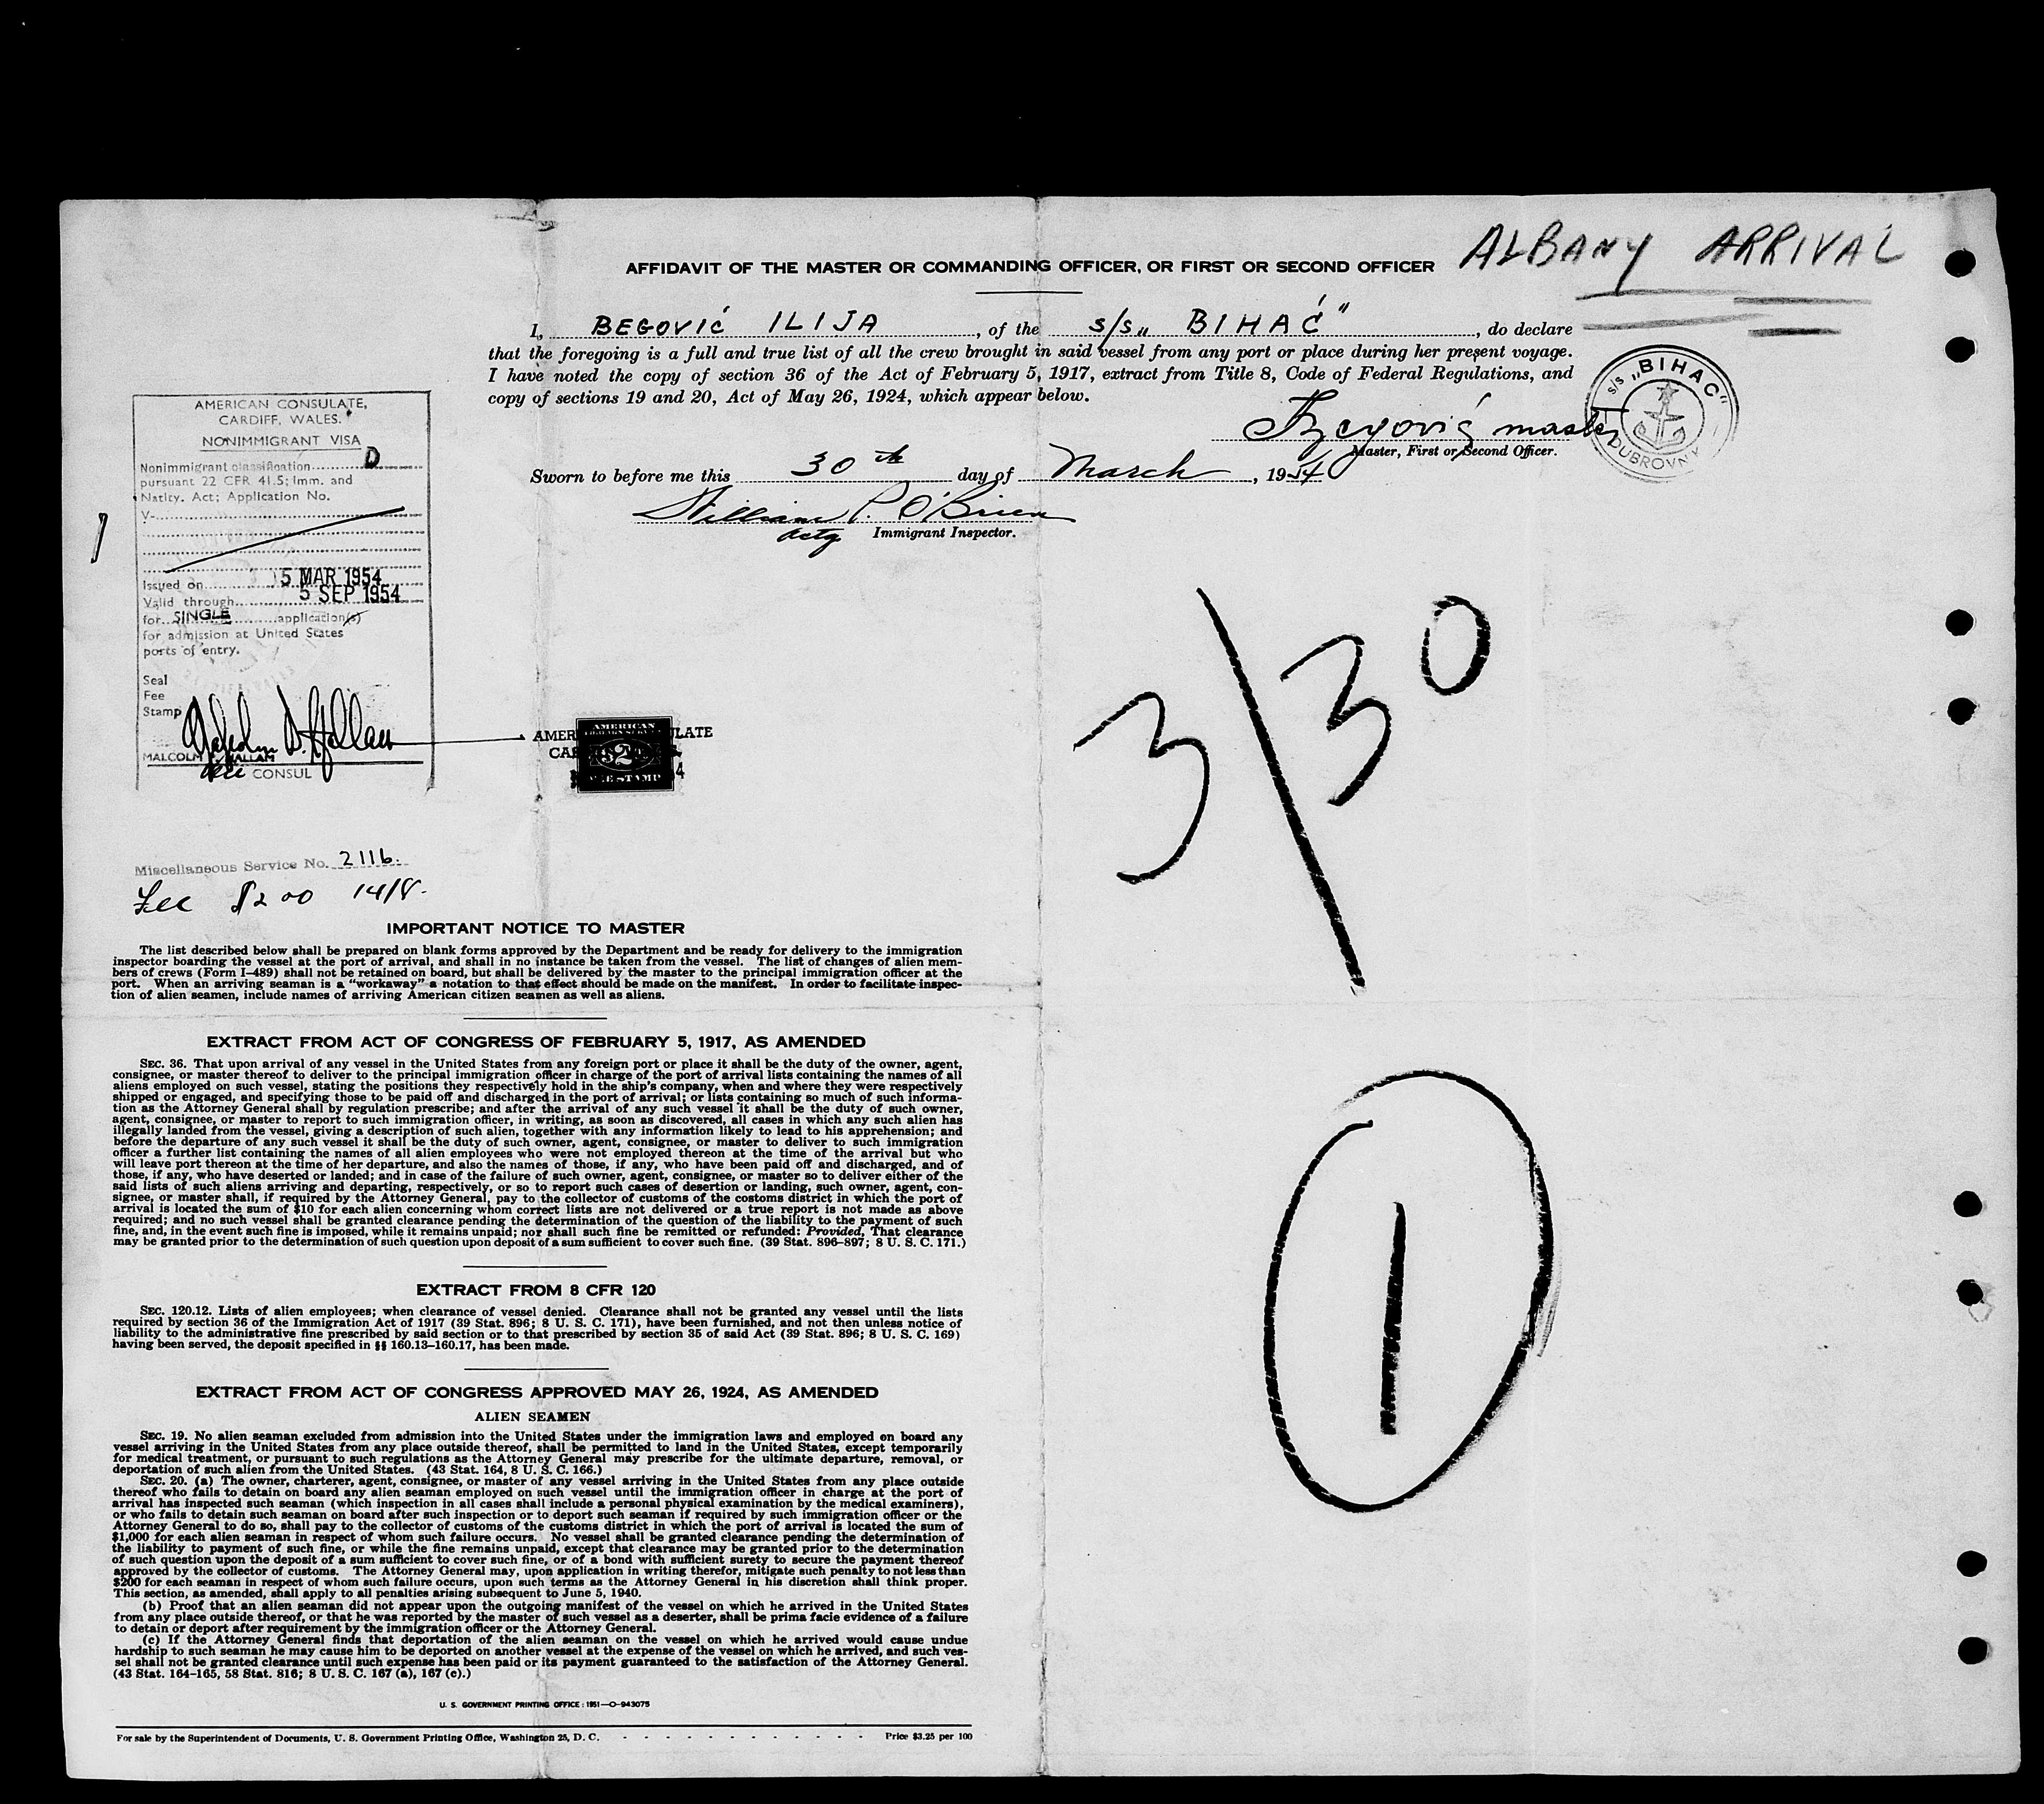 ALBANY ARRIVAL
AFFIDAVIT OF THE MASTER OR COMMANDING OFFICER, OR FIRST OR SECOND OFFICER
I, BEGOVIĆ ILIJA, of the s/s „BIHAĆ", do declare
that the foregoing is a full and true list of all the crew brought in said vessel from any port or place during her present voyage.
I have noted the copy of section 36 of the Act of February 5, 1917, extract from Title 8, Code of Federal Regulations, and
copy of sections 19 and 20, Act of May 26, 1924, which appear below.
Begović master
Master, First or Second Officer.
s/s „BIHAĆ"
DUBROVNIK
Sworn to before me this 30th day of March, 1954
William P. O'Brien
Actg Immigrant Inspector.
AMERICAN CONSULATE,
CARDIFF, WALES.
NONIMMIGRANT VISA
Nonimmigrant classification D
pursuant 22 CFR 41.5; Imm. and
Natlty. Act; Application No.
V-
Issued on 5 MAR 1954
Valid through 5 SEP 1954
for SINGLE application(s)
for admission at United States
ports of entry.
Seal
Fee
Stamp
Malcolm P. Hallam
MALCOLM P. HALLAM
Vice CONSUL
AMERICAN
$2
FEE STAMP
Miscellaneous Service No. 2116.
Fee $2 00 14/8.
3/30
1
IMPORTANT NOTICE TO MASTER
The list described below shall be prepared on blank forms approved by the Department and be ready for delivery to the immigration
inspector boarding the vessel at the port of arrival, and shall in no instance be taken from the vessel. The list of changes of alien mem-
bers of crews (Form I-489) shall not be retained on board, but shall be delivered by the master to the principal immigration officer at the
port. When an arriving seaman is a "workaway" a notation to that effect should be made on the manifest. In order to facilitate inspec-
tion of alien seamen, include names of arriving American citizen seamen as well as aliens.
EXTRACT FROM ACT OF CONGRESS OF FEBRUARY 5, 1917, AS AMENDED
SEC. 36. That upon arrival of any vessel in the United States from any foreign port or place it shall be the duty of the owner, agent,
consignee, or master thereof to deliver to the principal immigration officer in charge of the port of arrival lists containing the names of all
aliens employed on such vessel, stating the positions they respectively hold in the ship's company, when and where they were respectively
shipped or engaged, and specifying those to be paid off and discharged in the port of arrival; or lists containing so much of such informa-
tion as the Attorney General shall by regulation prescribe; and after the arrival of any such vessel it shall be the duty of such owner,
agent, consignee, or master to report to such immigration officer, in writing, as soon as discovered, all cases in which any such alien has
illegally landed from the vessel, giving a description of such alien, together with any information likely to lead to his apprehension; and
before the departure of any such vessel it shall be the duty of such owner, agent, consignee, or master to deliver to such immigration
officer a further list containing the names of all alien employees who were not employed thereon at the time of the arrival but who
will leave port thereon at the time of her departure, and also the names of those, if any, who have been paid off and discharged, and of
those, if any, who have deserted or landed; and in case of the failure of such owner, agent, consignee, or master so to deliver either of the
said lists of such aliens arriving and departing, respectively, or so to report such cases of desertion or landing, such owner, agent, con-
signee, or master shall, if required by the Attorney General, pay to the collector of customs of the costoms district in which the port of
arrival is located the sum of $10 for each alien concerning whom correct lists are not delivered or a true report is not made as above
required; and no such vessel shall be granted clearance pending the determination of the question of the liability to the payment of such
fine, and, in the event such fine is imposed, while it remains unpaid; nor shall such fine be remitted or refunded: Provided, That clearance
may be granted prior to the determination of such question upon deposit of a sum sufficient to cover such fine. (39 Stat. 896-897; 8 U. S. C. 171.)
EXTRACT FROM 8 CFR 120
SEC. 120.12. Lists of alien employees; when clearance of vessel denied. Clearance shall not be granted any vessel until the lists
required by section 36 of the Immigration Act of 1917 (39 Stat. 896; 8 U. S. C. 171), have been furnished, and not then unless notice of
liability to the administrative fine prescribed by said section or to that prescribed by section 35 of said Act (39 Stat. 896; 8 U. S. C. 169)
having been served, the deposit specified in §§ 160.13-160.17, has been made.
EXTRACT FROM ACT OF CONGRESS APPROVED MAY 26, 1924, AS AMENDED
ALIEN SEAMEN
SEC. 19. No alien seaman excluded from admission into the United States under the immigration laws and employed on board any
vessel arriving in the United States from any place outside thereof, shall be permitted to land in the United States, except temporarily
for medical treatment, or pursuant to such regulations as the Attorney General may prescribe for the ultimate departure, removal, or
deportation of such alien from the United States. (43 Stat. 164, 8 U. S. C. 166.)
SEC. 20. (a) The owner, charterer, agent, consignee, or master of any vessel arriving in the United States from any place outside
thereof who fails to detain on board any alien seaman employed on such vessel until the immigration officer in charge at the port of
arrival has inspected such seaman (which inspection in all cases shall include a personal physical examination by the medical examiners),
or who fails to detain such seaman on board after such inspection or to deport such seaman if required by such immigration officer or the
Attorney General to do so, shall pay to the collector of customs of the customs district in which the port of arrival is located the sum of
$1,000 for each alien seaman in respect of whom such failure occurs. No vessel shall be granted clearance pending the determination of
the liability to payment of such fine, or while the fine remains unpaid, except that clearance may be granted prior to the determination
of such question upon the deposit of a sum sufficient to cover such fine, or of a bond with sufficient surety to secure the payment thereof
approved by the collector of customs. The Attorney General may, upon application in writing therefor, mitigate such penalty to not less than
$200 for each seaman in respect of whom such failure occurs, upon such terms as the Attorney General in his discretion shall think proper.
This section, as amended, shall apply to all penalties arising subsequent to June 5, 1940.
(b) Proof that an alien seaman did not appear upon the outgoing manifest of the vessel on which he arrived in the United States
from any place outside thereof, or that he was reported by the master of such vessel as a deserter, shall be prima facie evidence of a failure
to detain or deport after requirement by the immigration officer or the Attorney General.
(c) If the Attorney General finds that deportation of the alien seaman on the vessel on which he arrived would cause undue
hardship to such seaman he may cause him to be deported on another vessel at the expense of the vessel on which he arrived, and such ves-
sel shall not be granted clearance until such expense has been paid or its payment guaranteed to the satisfaction of the Attorney General.
(43 Stat. 164-165, 58 Stat. 816; 8 U. S. C. 167 (a), 167 (c).)
U. S. GOVERNMENT PRINTING OFFICE : 1951—O-943075
For sale by the Superintendent of Documents, U. S. Government Printing Office, Washington 25, D. C. - - - - - - - - - - - - Price $3.25 per 100